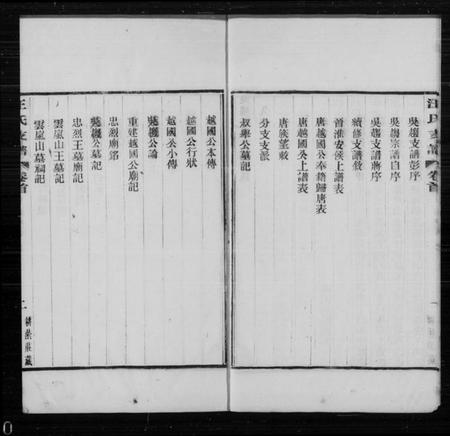 汪氏支譜 卷首
吳趨支譜彭序
吳趨宗譜自序
吳趨支譜蔣序
續修支譜敘
首淮安侯上譜表
唐越國公奉籍歸唐表
唐越國公上譜表
唐族望敕
分支支派
叔舉公墓記
一
越國公本傳
越國公行狀
越國公小傳
吳趨公論
重建越國公廟記
忠烈廟銘
吳趨公墓記
忠烈王墓廟記
雲嵐山王墓記
雲嵐山墓祠記
汪氏支譜 卷首
二
耕蔭莊藏
0